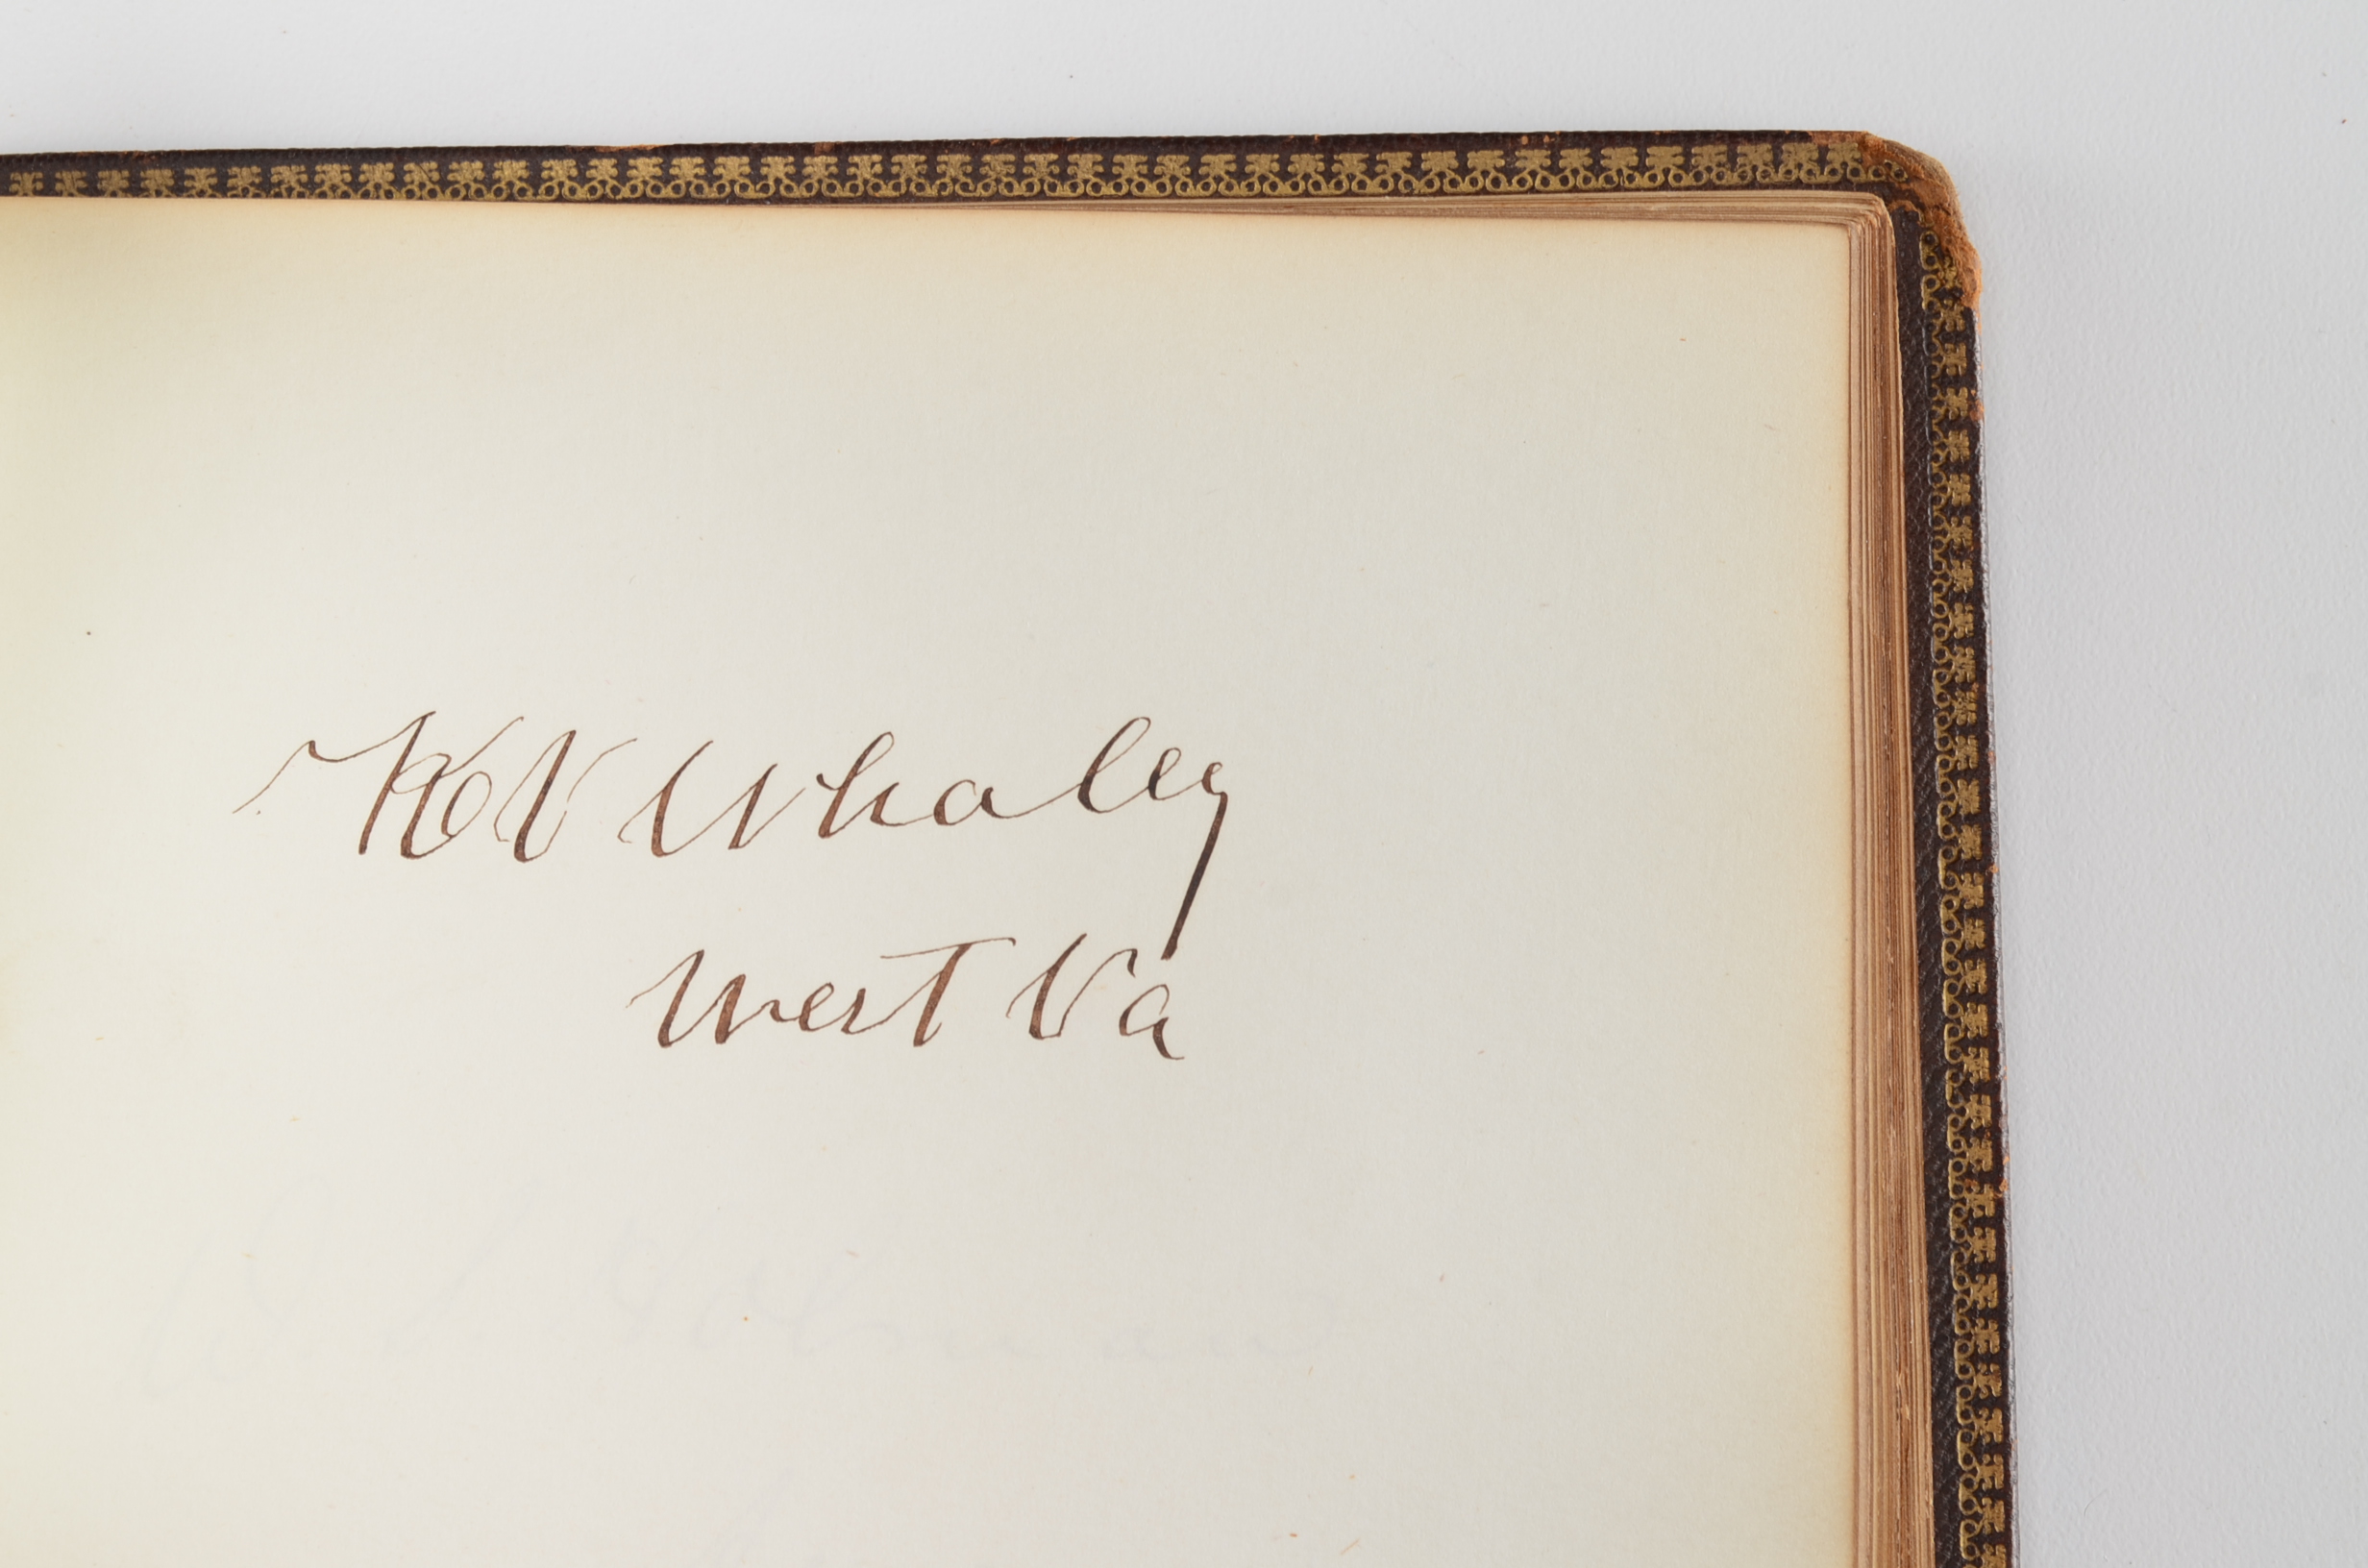 K V Whaley
West Va